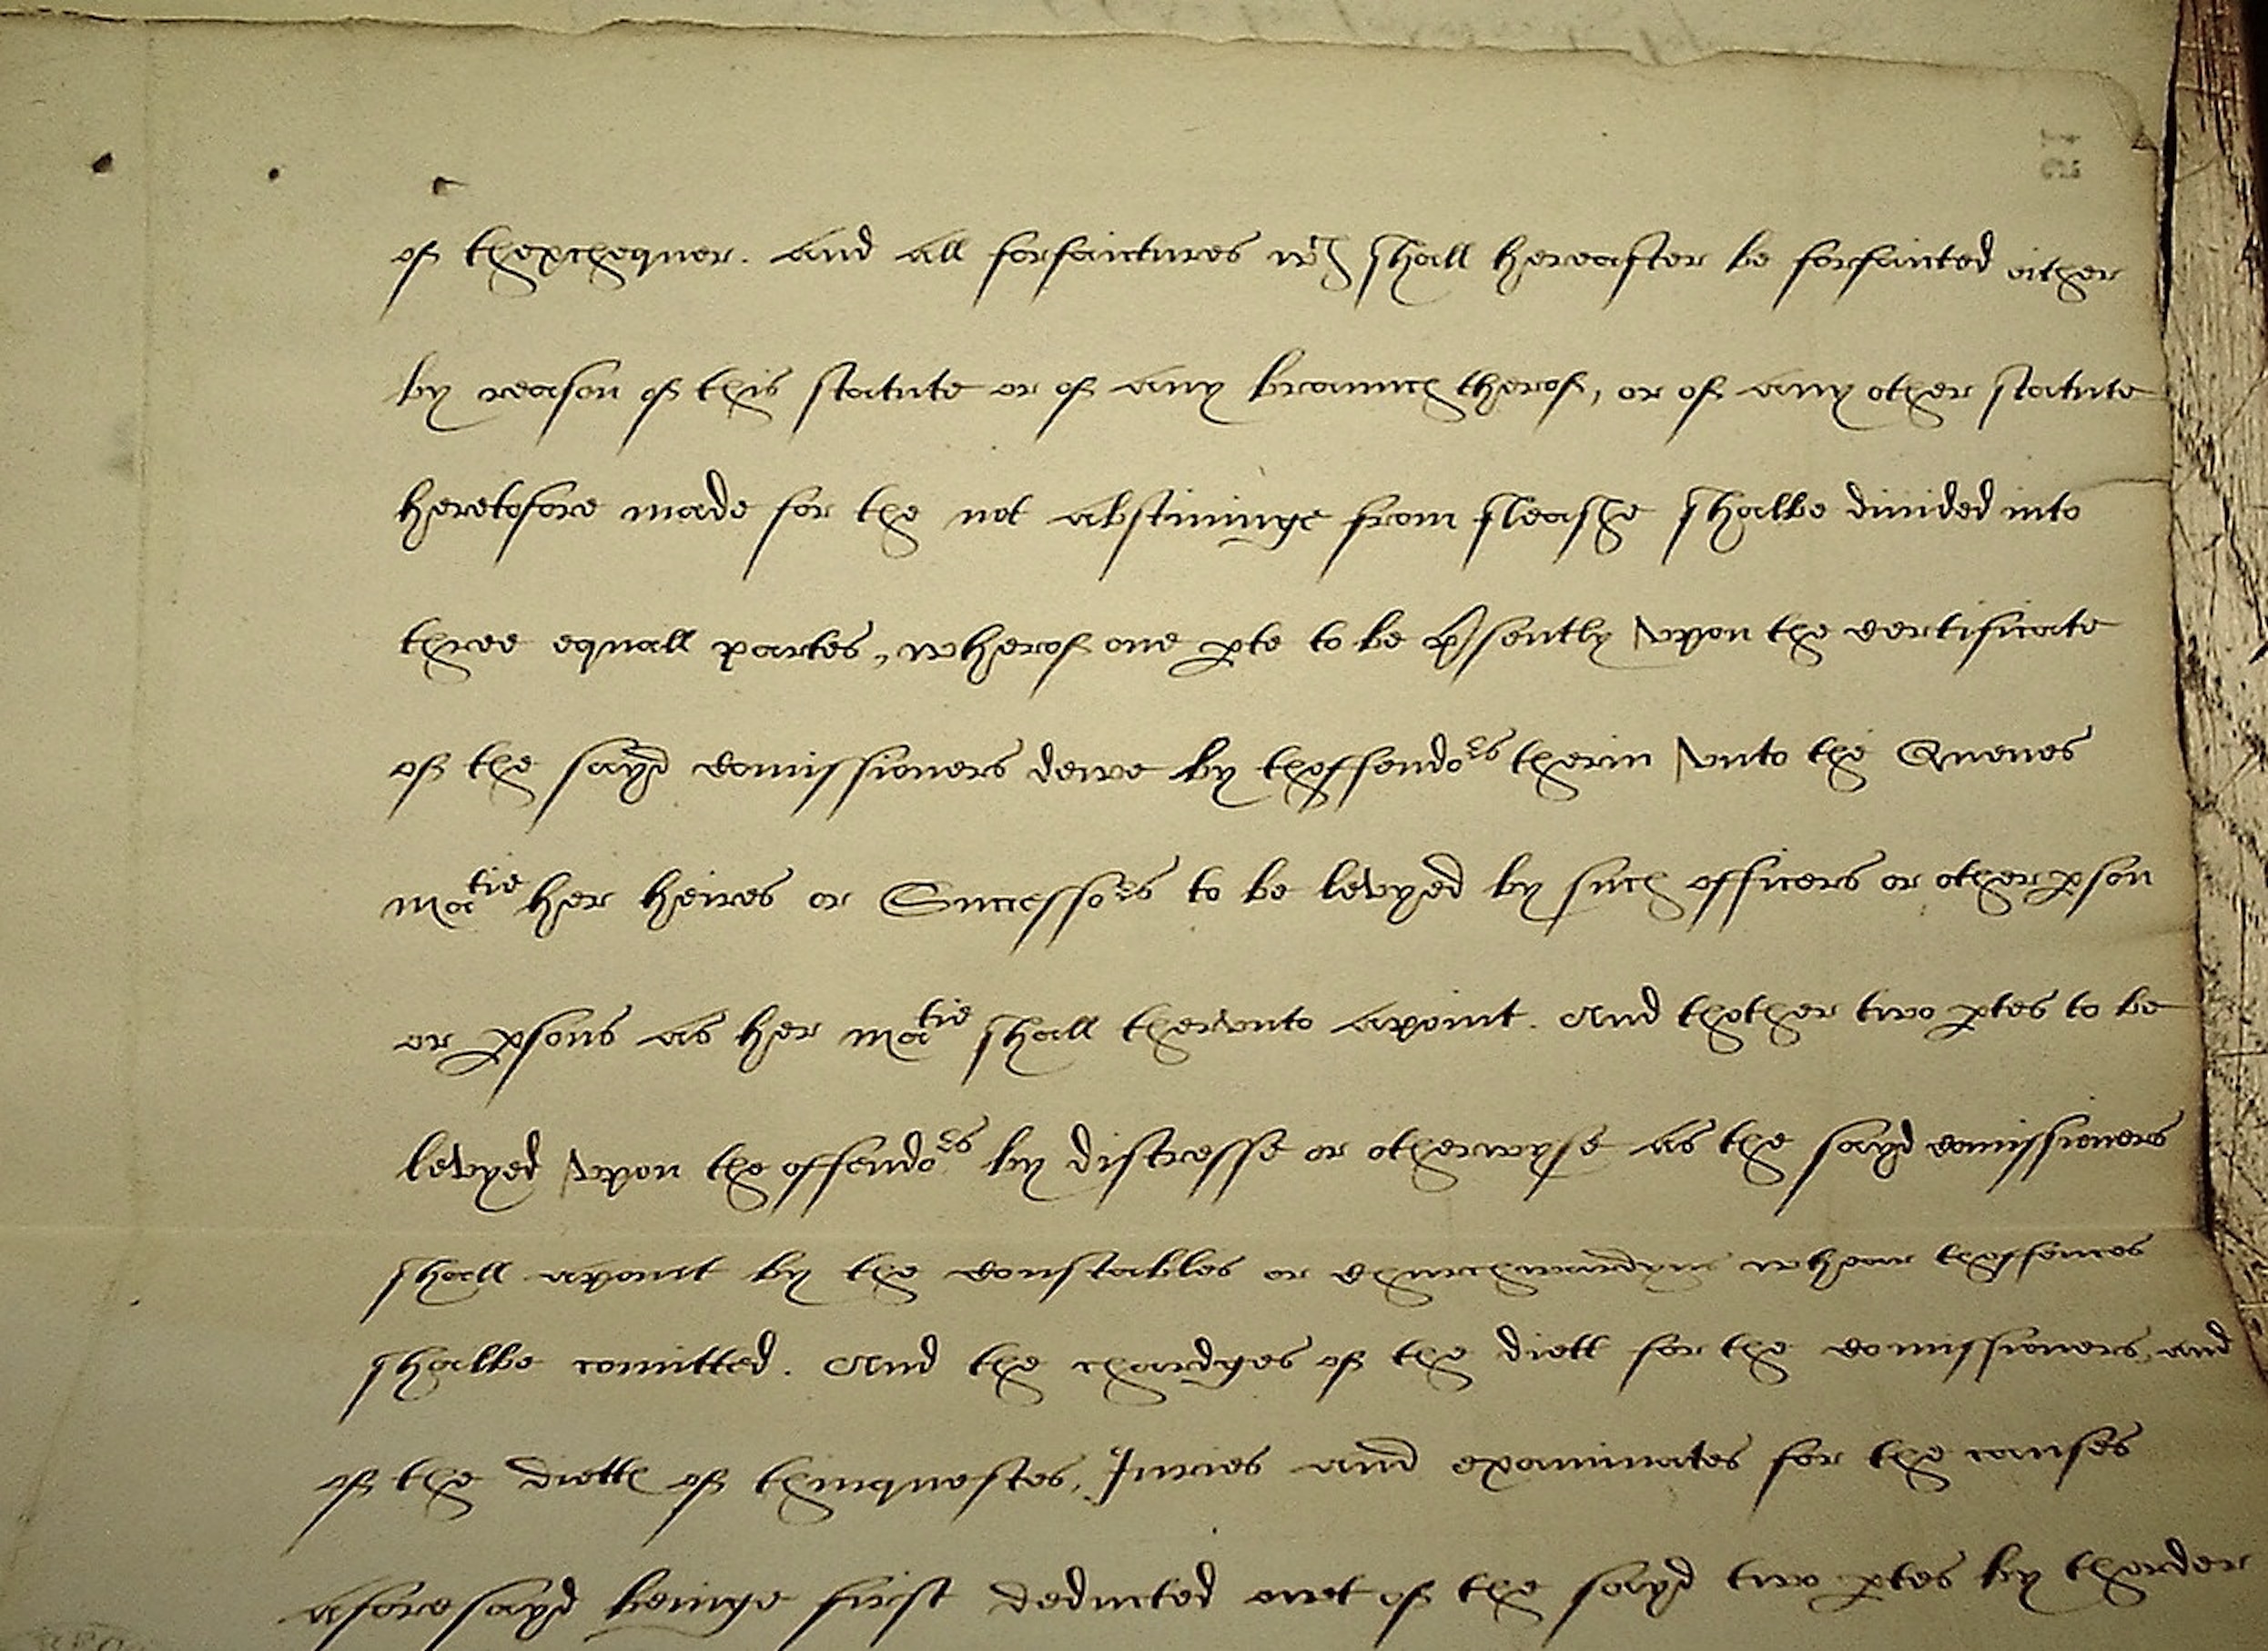 of thexchequer. And all forfaictures wch shall hereafter be forfaicted either
by reason of this statute or of any braunch therof, or of any other statute
heretofore made for the not abstininge from fleashe shalbe diuided into
three equall partes, wherof one pte to be psently vpon the certificate
of the sayd comissioners dewe by theffendors therin vnto the Quenes
matie her heires or Successors to be levyed by such officers or other pson
or psons as her matie shall thervnto apoint. And thother two ptes to be
levyed vpon the offendors by distresse or otherwyse as the sayd comissioners
shall apoint by the constables or churchwardyns whear theffences
shalbe comitted. And the chardges of the diett for the comissioners, and
of the diett of thinquestes, Juries and examinates for the causes
aforesayd beinge first deducted owt of the sayd two ptes by thorder